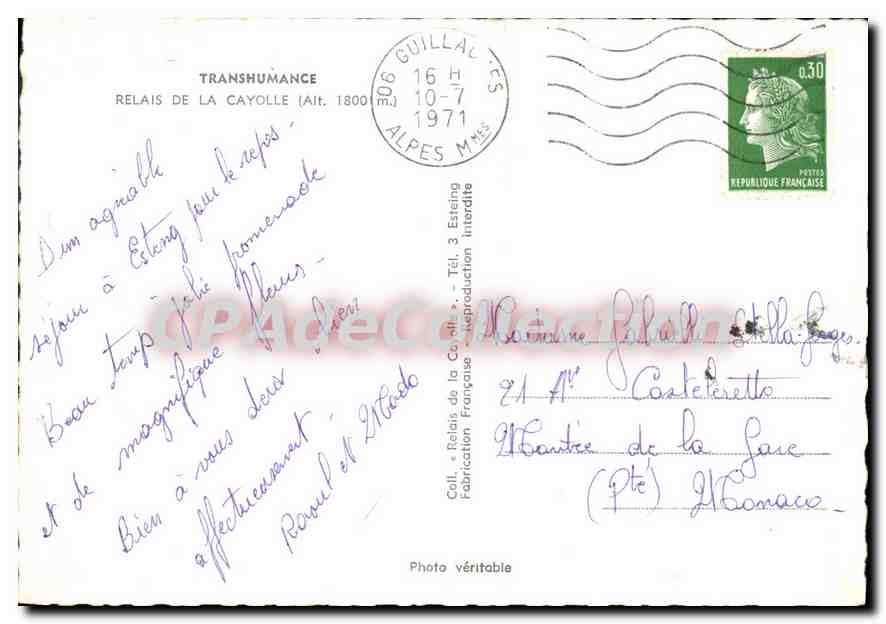 TRANSHUMANCE
RELAIS DE LA CAYOLLE (Alt. 1800 m.)
06 GUILLAUMES
16 H
10-7
1971
ALPES Mmes
0,30
POSTES
REPUBLIQUE FRANÇAISE
agréable
séjour à Esteng pour le repos -
Beau temps - jolie promenade
et de magnifique fleurs -
Bien à vous deux bien
affectueusement.
Raoul et Mado
Coll. « Relais de la Cayolle ». - Tél. 3 Esteing
Fabrication Française - Reproduction interdite
Madame Stella
21 Ave
Montée de la Gare
(Pté) Monaco -
Photo véritable
CPAdeCollection